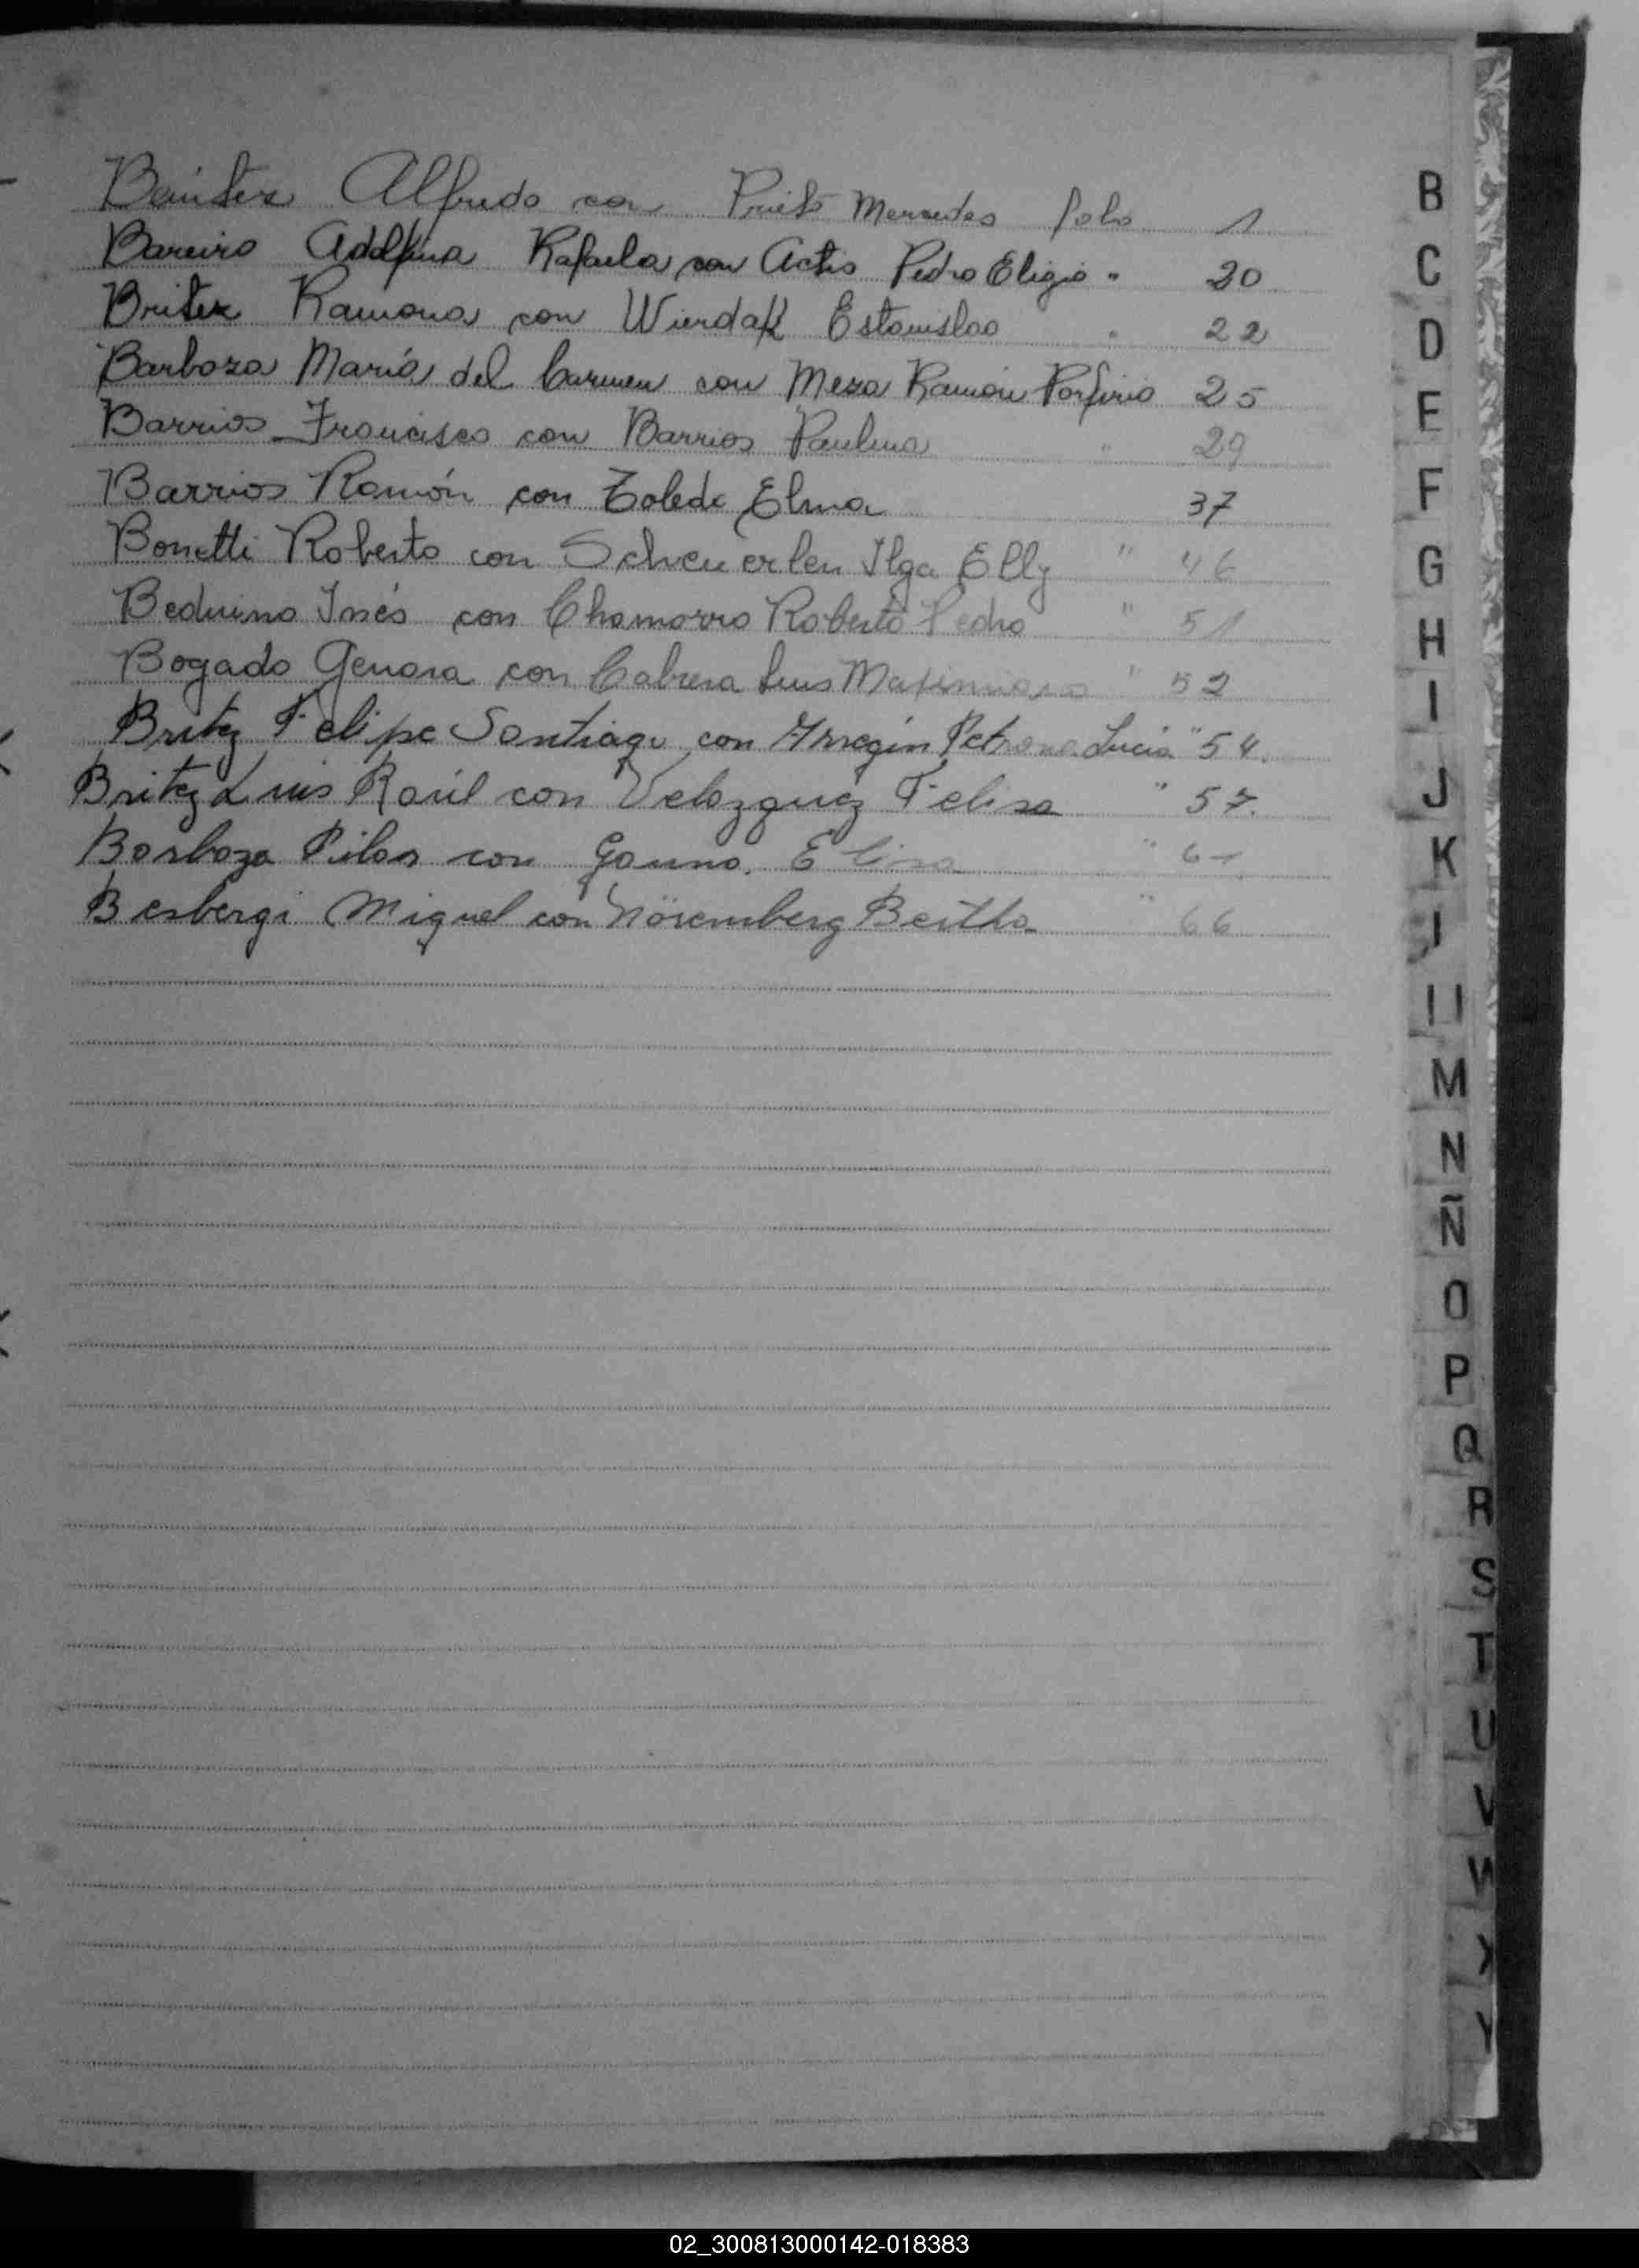 Benitez Alfredo con Prieto Mercedes folio 1
Bareiro Adolfina Rafaela con Actis Pedro Eligio " 20
Britez Ramona con Wierdak Estanislao " 22
Barboza María del Carmen con Meza Ramón Porfirio 25
Barrios Francisco con Barrios Paulina " 29
Barrios Ramón con Toledo Elma 37
Bonetti Roberto con Scheuerlen Ilga Elly " 46
Beduino Inés con Chamorro Roberto Pedro " 51
Bogado Genara con Cabrera Luis " 52
Britez Felipe Santiago con Petrona Lucia " 54.
Britez Luis Raúl con Velazquez Felisa " 57.
Barboza Pilar con Elisa " 61
Besbergi Miguel con Nöremberg Bertha " 66
B
C
D
E
F
G
H
I
J
K
M
N
Ñ
O
P
Q
R
S
T
U
V
W
X
Y
02_300813000142-018383